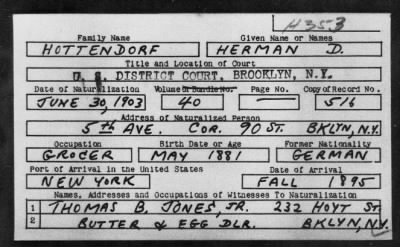 H353
Family Name Given Name or Names
HOTTENDORF HERMAN D.
Title and Location of Court
U. S. DISTRICT COURT, BROOKLYN, N.Y.
Date of Naturalization Volume or Bundle No. Page No. Copy of Record No.
JUNE 30, 1903 40 — 516
Address of Naturalized Person
5th AVE. COR. 90 ST. BKLYN, N.Y.
Occupation Birth Date or Age Former Nationality
GROCER MAY 1881 GERMAN
Port of Arrival in the United States Date of Arrival
NEW YORK FALL 1895
Names, Addresses and Occupations of Witnesses To Naturalization
1 THOMAS B. JONES, JR. 232 HOYT ST
2 BUTTER & EGG DLR. BKLYN, N.Y.